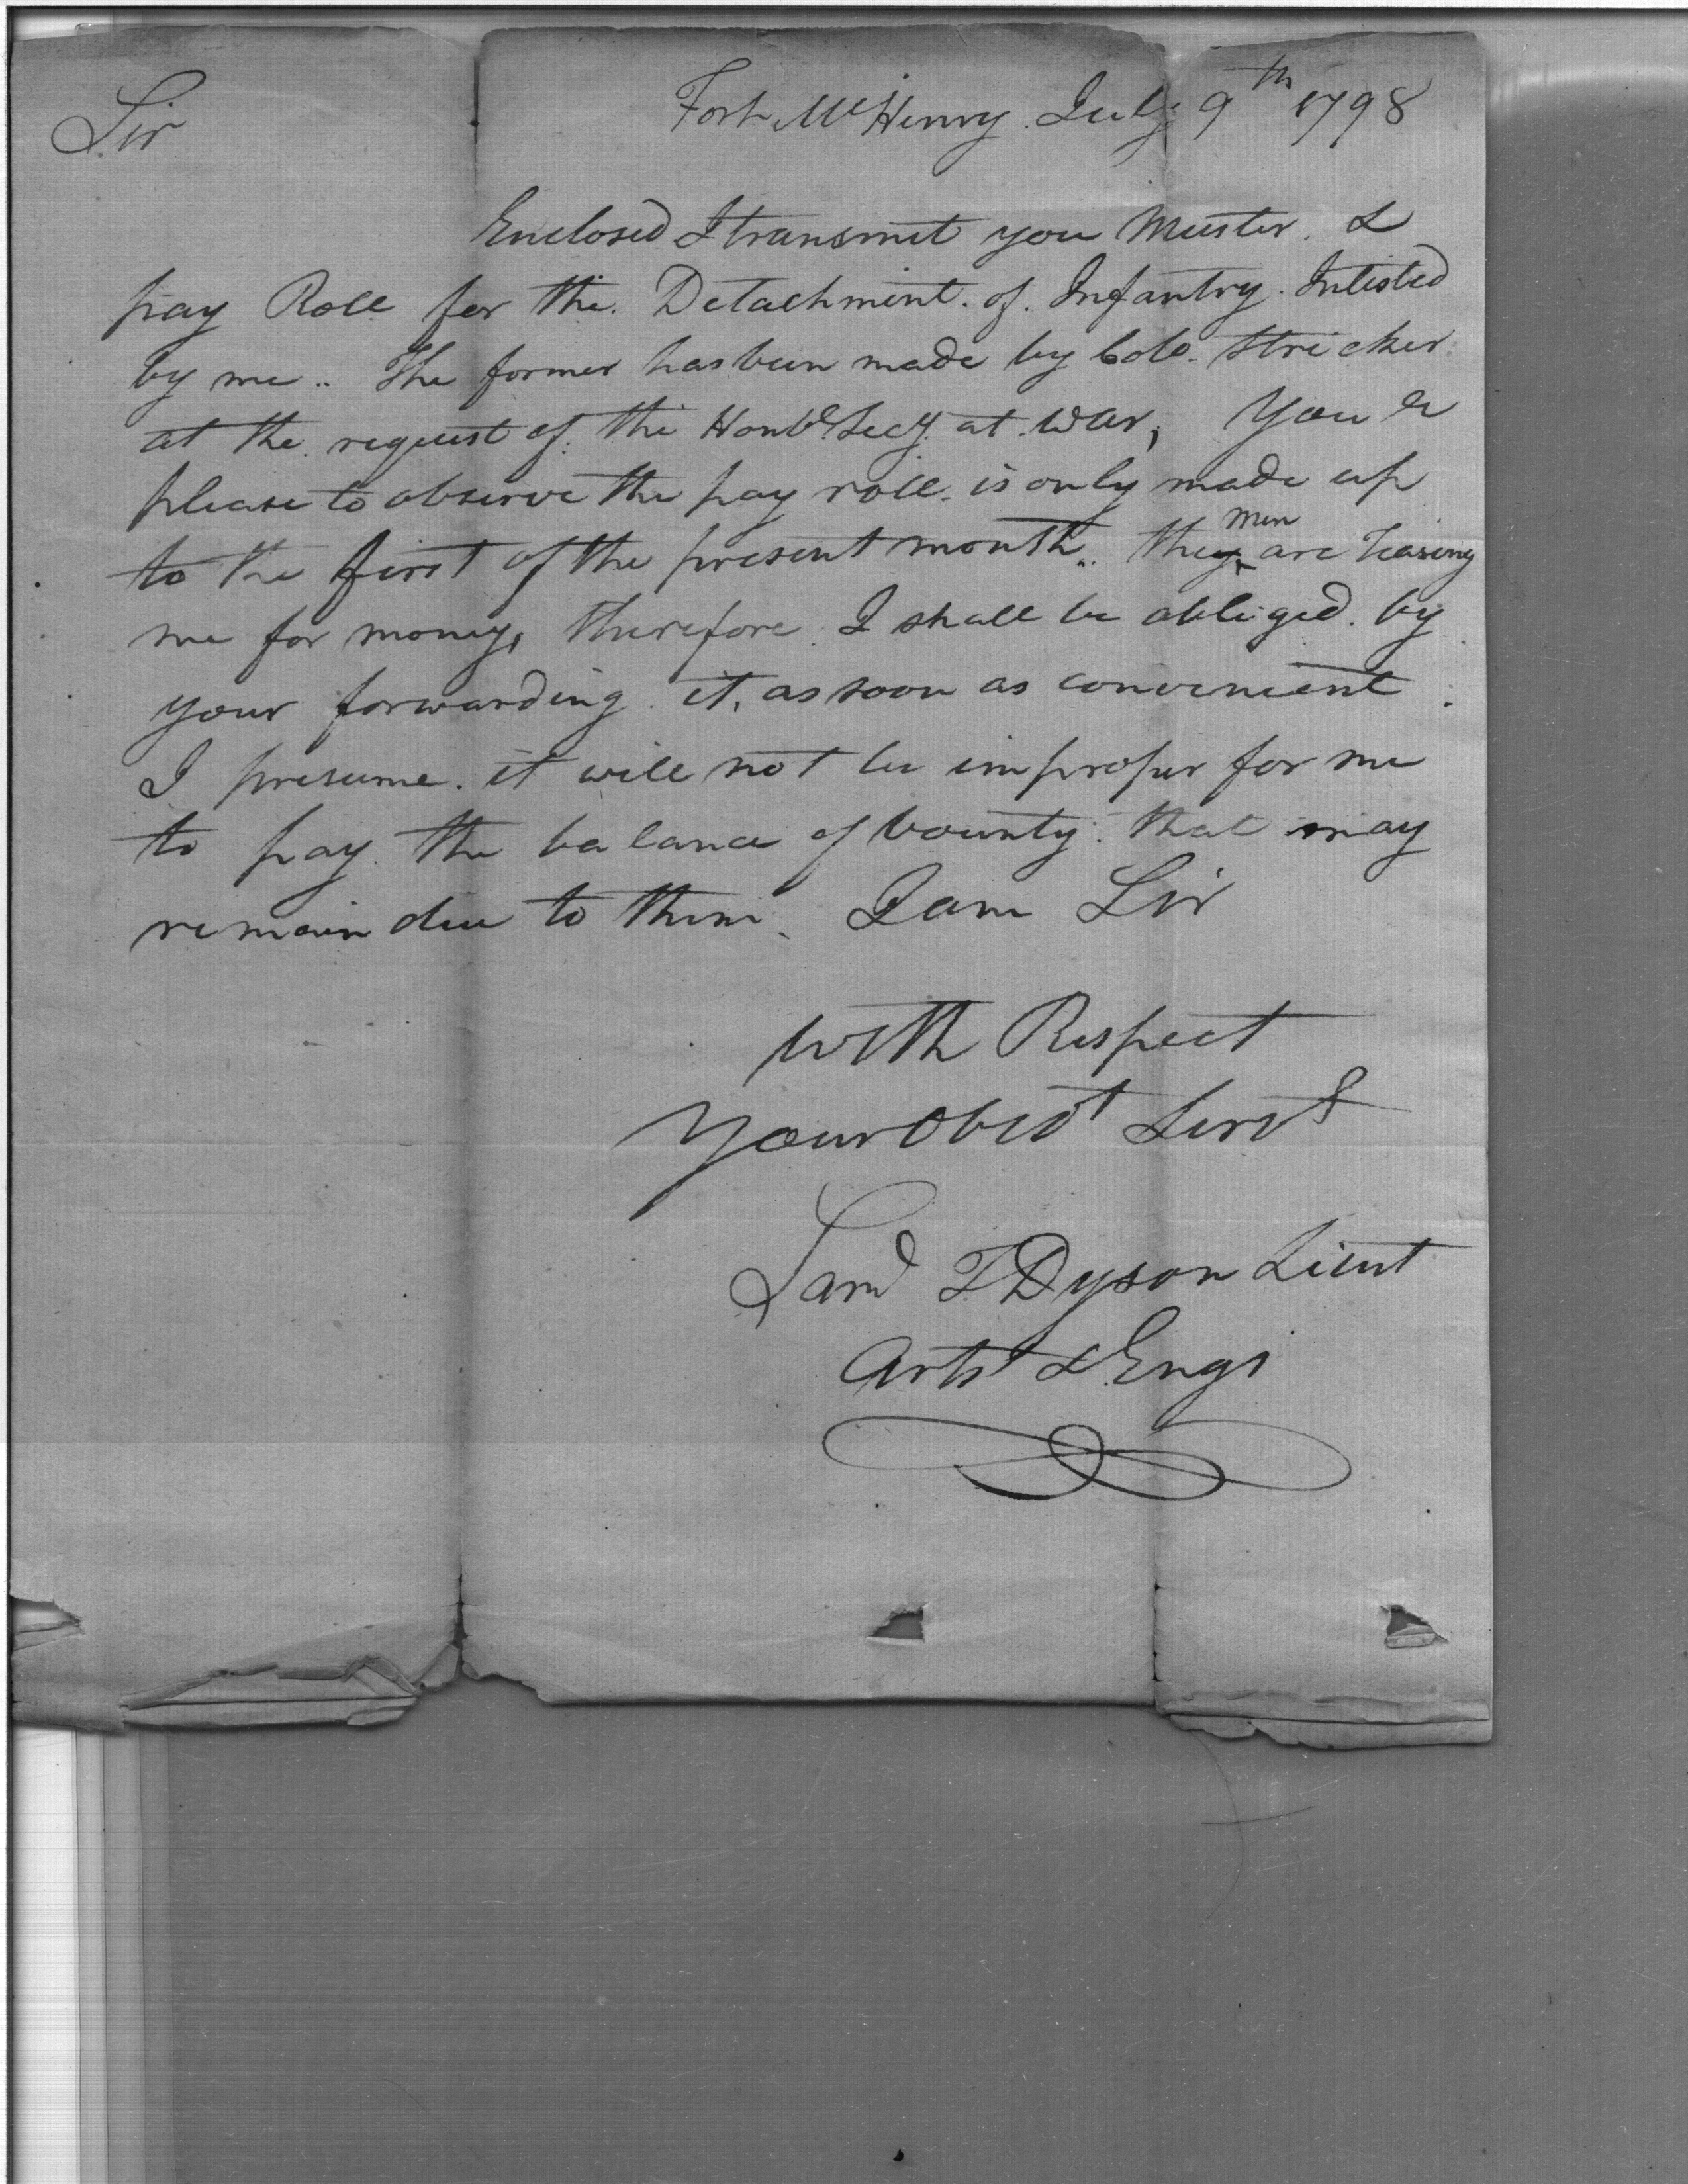 Fort McHenry July 9th 1798
Sir
Enclosed I transmit you Muster &
pay Roll for the Detachment of Infantry Inlisted
by me .. The former has been made by Colo. Stricker
at the request of the Honble Secy at War, You'll
please to observe the pay roll is only made up
to the first of the present month .. they men are teasing
me for money, therefore I shall be obliged by
your forwarding it, as soon as convenient .
I presume it will not be improper for me
to pay the balance of bounty that may
remain due to them. I am Sir
with Respect
Your Obedt Servt
Saml T Dyson Lieut
Arts & Engs